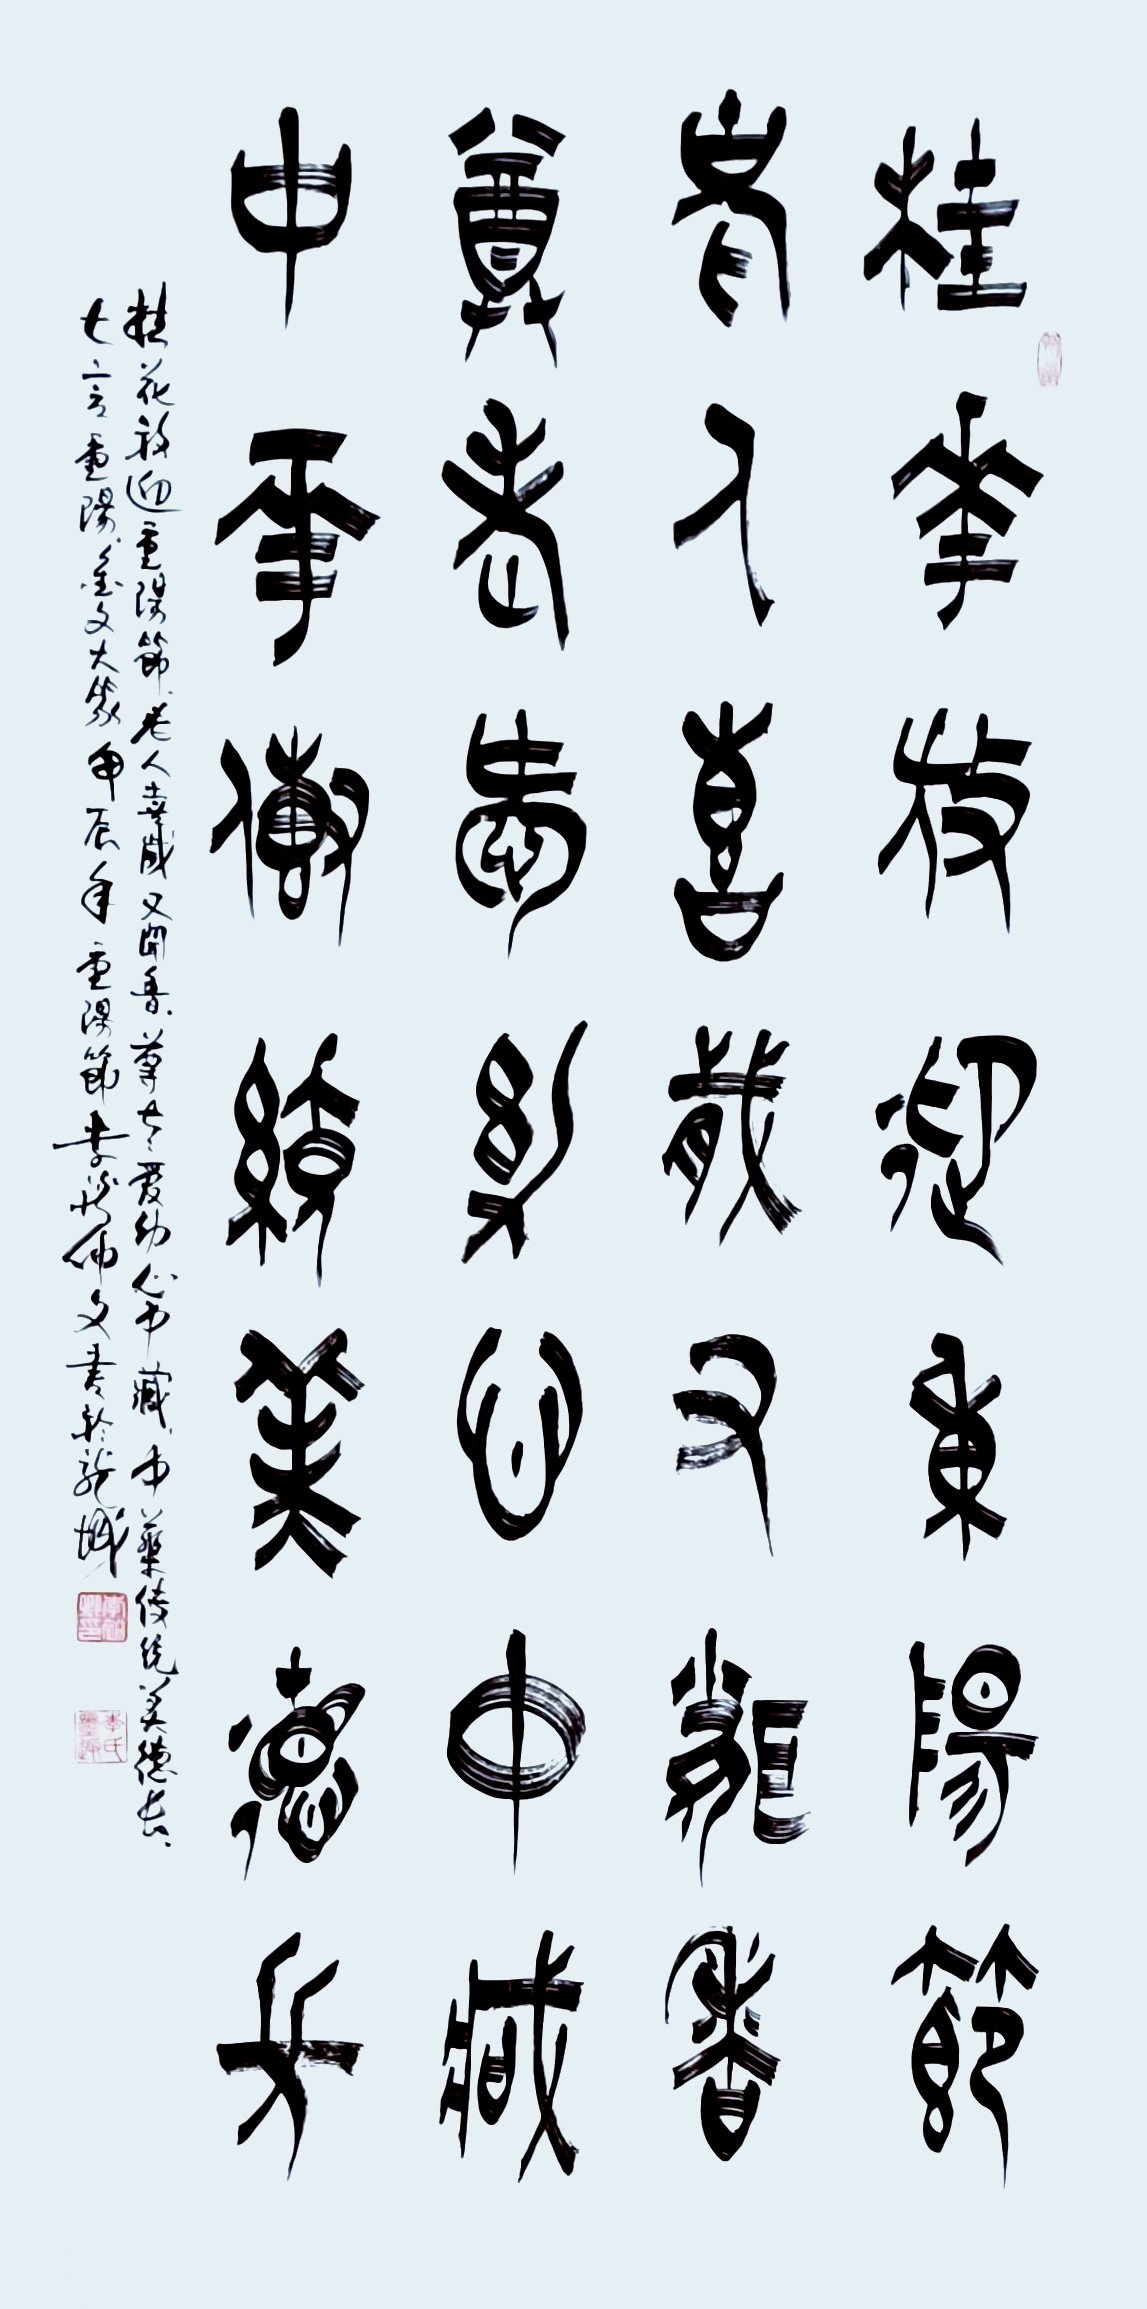 桂華放迎重陽節
老人喜歲又聞香
尊老愛幼心中藏
中華傳統美德長
桂花放迎重陽節老人喜歲又聞香尊老愛幼心中藏中華傳統美德長
七言重陽金文大篆甲辰年重陽節李 佩文書於龍城